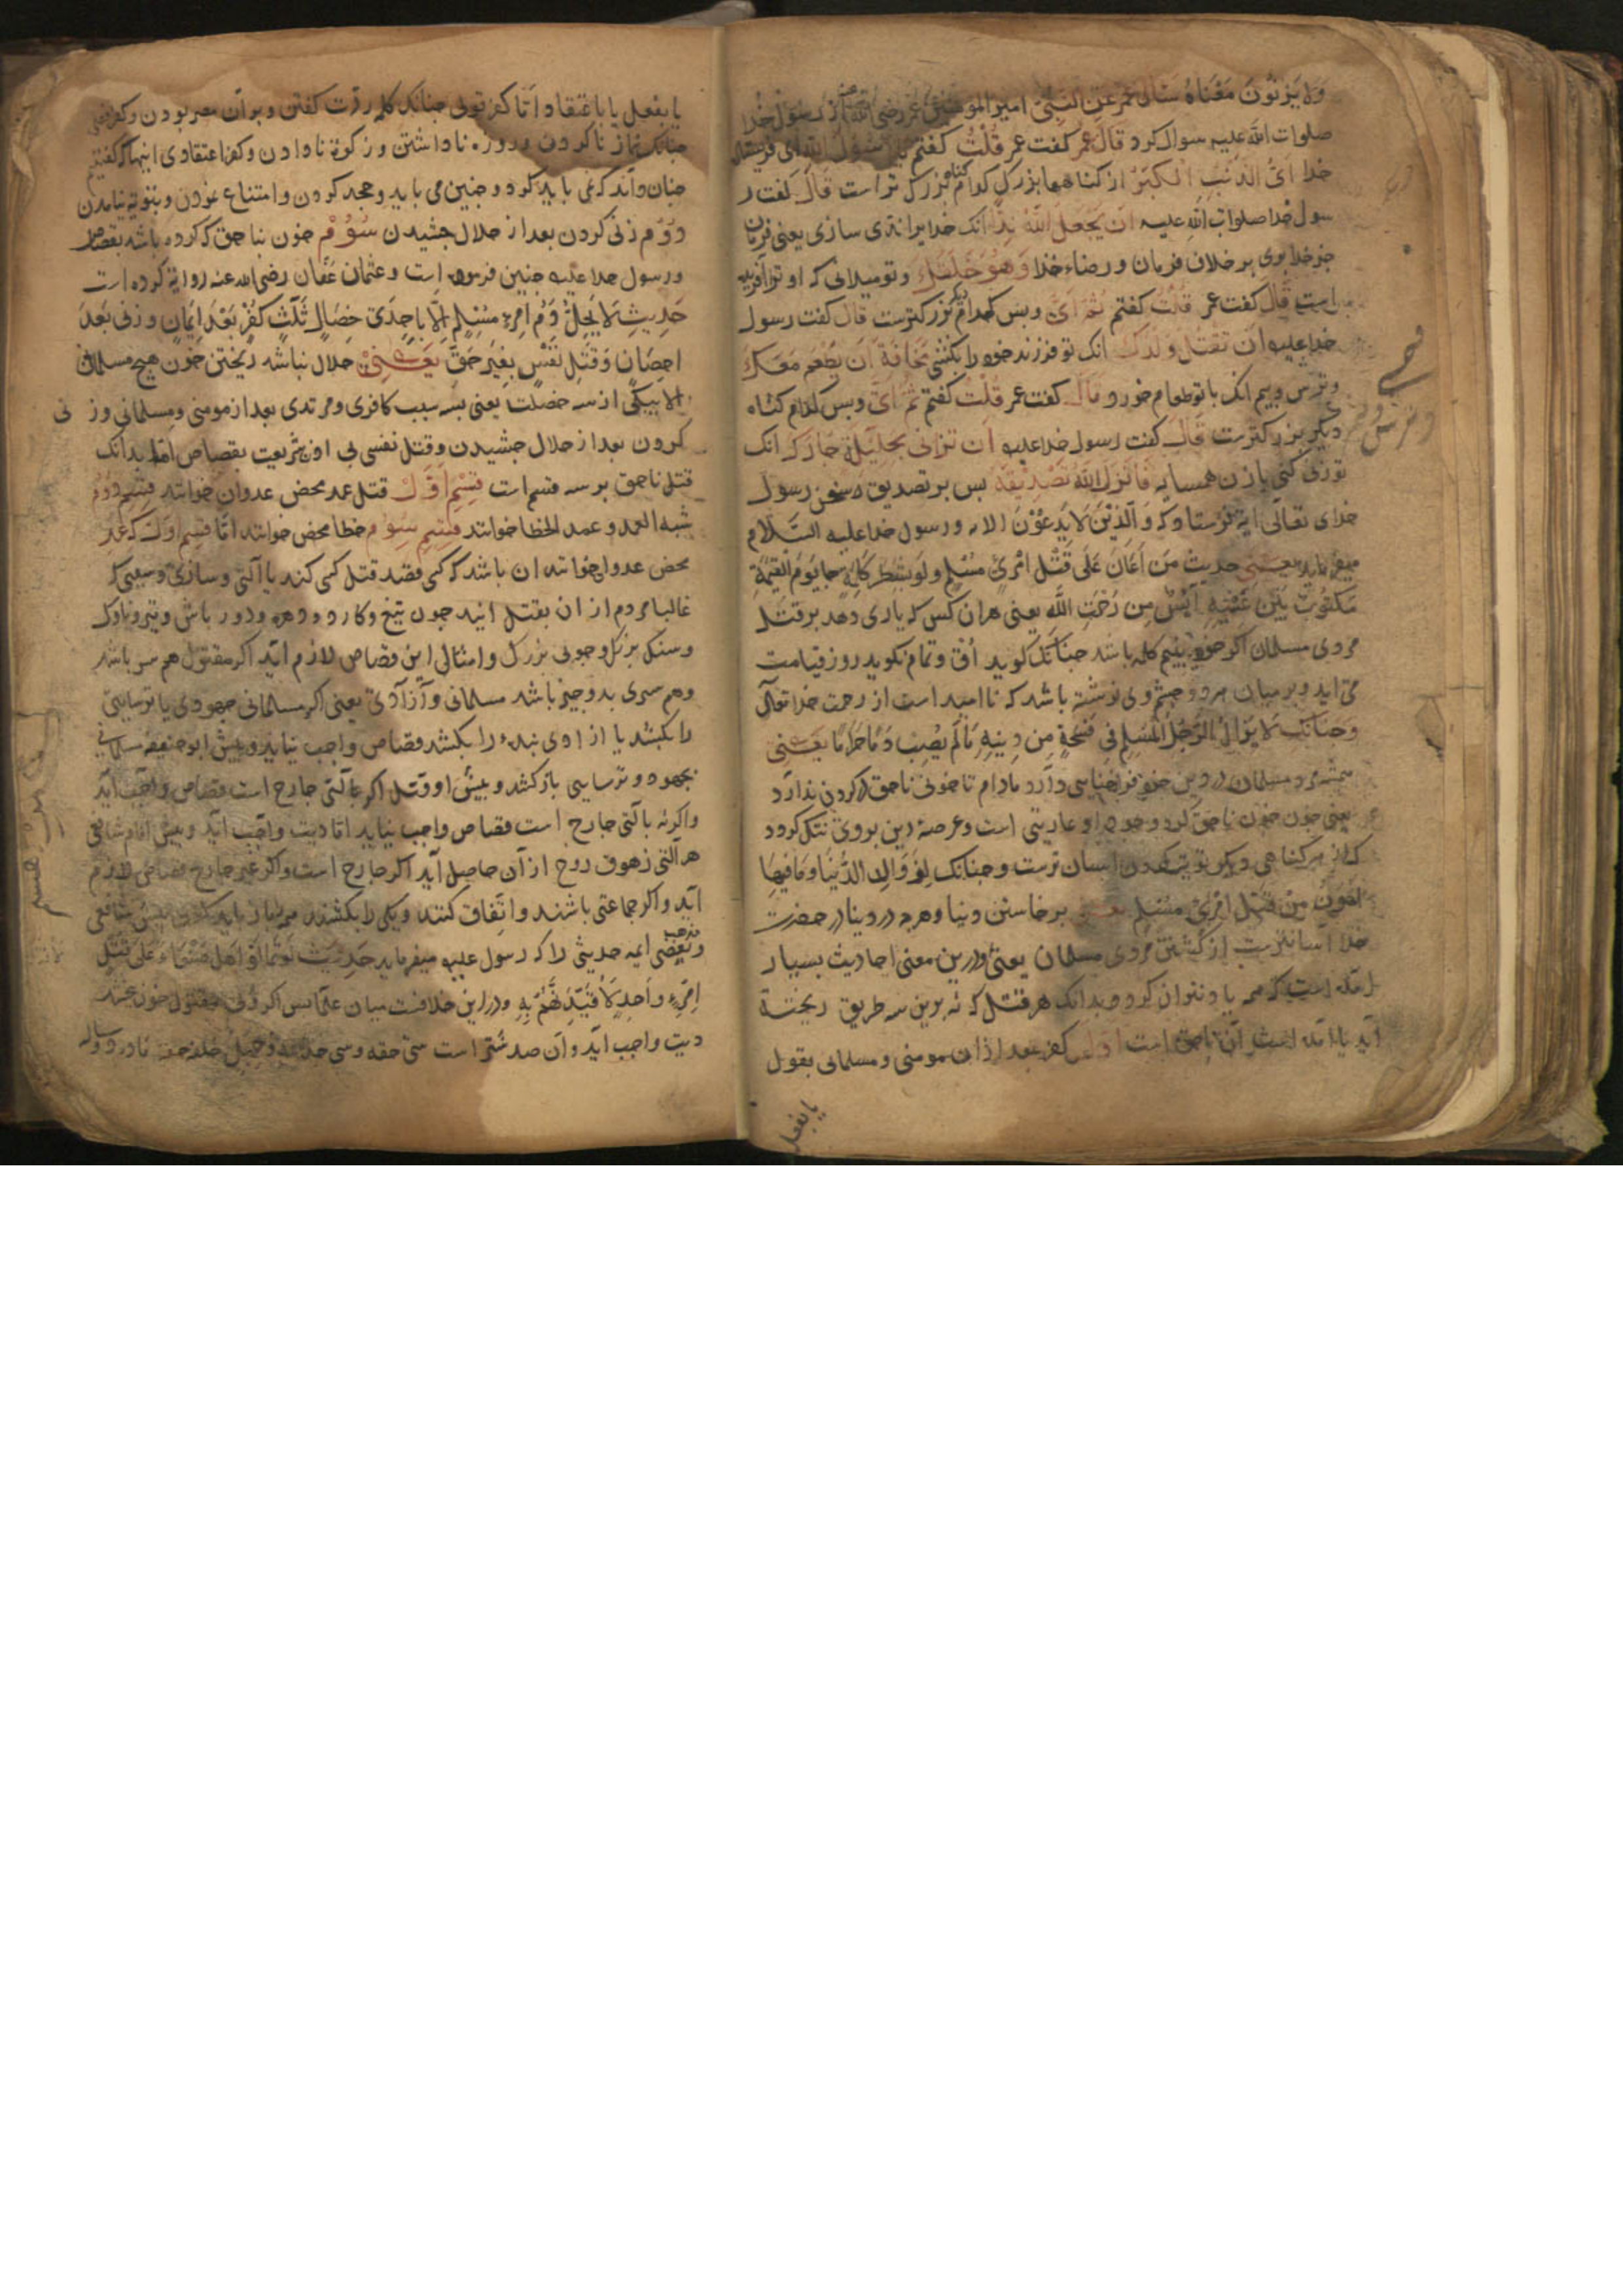 وَلَا يَزْنُونَ مَعْنَاهُ سَأَلَ عُمَرُ عَنِ النَّبِيِّ امیر المومنین عمر رضی الله از رسول خدا
صلوات الله علیه سوال کرد قَالَ عمر کفت عمر قُلْتُ کفتم یا رسول الله ای فرستاده
خدا اَیُّ الذَّنبِ اکبَرُ از کناهها بزرک کدام کناه بزرک تر است قَالَ کفت ر
سول خدا صلوات الله علیه اَن یَجعَلَ اللهَ نِدًّا انک خدایرا نِدّی سازی یعنی فرمان
جز خدا بری بر خلاف فرمان و رضاء خدا وَهُوَ خَلَقَكَ و تو میدانی که او ترا آفریده
است قَالَ کفت عمر قُلْتُ کفتم ثُمَّ اَیّ و بس کدام بزرکترست قال کفت رسول
خدا علیه اَن تَقتُلَ وَلَدَكَ انک تو فرزند خود را بکشی مَخَافَةَ اَن یَطعَمَ مَعَكَ
و ترس و بیم انک با تو طعام خورد قَالَ کفت عمر قُلْتُ کفتم ثُمَّ اَیّ و بس کدام کناه
دیکر بزرکترست قَالَ کفت رسول خدا علیه اَن تُزانی بِحَلِیلَةِ جَارِكَ انک
تو زنی کنی با زن همسایه فَاَنزَلَ اللهُ تَصْدِیقَهُ بس بر تصدیق سخن رسول
خدای تعالی ایة فرستاد که وَالَّذِیْنَ لَا یَدْعُوْنَ الایه و رسول خدا علیه السَّلام
میفرماید حدیث مَن اَعَانَ عَلَی قَتْلِ امْرِئٍ مُسْلِمٍ وَلَو بِشَطرِ کَلِمَةٍ جَا یَومَ القِیٰمَةِ
مَکتُوبٌ بَینَ عَیْنَیهِ اٰیِسٌ مِن رَحمَتِ الله یعنی هر ان کس که یاری دهد بر قتل
مردی مسلمان اکر خود بنیم کلمه باشد جنانک کوید اُق و تمام نکوید روز قیامت
می اید و بر میان هر دو جشم وی نوشته باشد که نا امید است از رحمت خدا تعالی
وَجنانک لَا یَزَالُ الرَّجُلُ المُسلِم فِی فُسْحَةٍ مِن دِینِهِ مَا لَم یُصِب دَمًا حَرَامًا یَعنِی
مسلمان در دین خود فراخنایی دارد مادام تا خونی ناحق کردن ندارد
یعنی جون خون ناحق کرد وجود او عاریتی است و عرصهٔ دین بروی تنک کردد
لَزَوَالُ الدُّنیَا وَمَا فِیهَا
اَهْوَنُ مِنْ قَتْلِ امْرِئٍ مُسْلِمٍ یعنی برخاستن دنیا و هرچه در دنیا در حضرت
خدا آسانترست از کشتن مردی مسلمان یعنی و درین معنی احادیث بسیار
امده است که همه یاد نتوان کرد و بدانک هر قتل که نه برین سه طریق ریخته
آید یا امده است آن ناحق است اوّل کفر بعد از ان مومنی و مسلمانی بقول
یا بفعل
یا بفعل یا باعتقاد امّا کفر قولی جنانک کلمه ردّت کفتن و بر آن مصر بودن و کفر فعلی
جنانک نماز ناکردن و روزه ناداشتن و زکوة نادادن و کفر اعتقادی اینها که کفتیم
جنان داند که نمی باید کرد و جنین می باید و جحد کردن و امتناع نمودن و بتوبه نیامدن
دُوُم زنی کردن بعد از حلال جشیدن سُوُم خون بناحق که کرده باشد بقصاص
و رسول خدا علیه جنین فرموده است و عثمان عَفّان رضی الله عنه روایة کرده است
حَدِیث لَا یَحِلُّ دَمُ امرِءٍ مُسْلِمٍ اِلَّا بِاِحدَی خِصَالٍ ثَلٰثٍ کُفْرٌ بَعْدَ اِیمَانٍ وَزِنًی بَعدَ
اِحصَانٍ وَقَتلِ نَفْسٍ بِغَیرِ حَقٍّ یَعنِی حلال نباشد ریختن خون هیج مسلمان
الا بیکی از سه خصلت یعنی بسه سبب کافری و مرتدی بعد از مومنی و مسلمانی و ز نی
کردن بعد از حلال جشیدن و قتل نفسی بی اذن شریعت بقصاص امّا بدانک
قتل ناحق بر سه قسم است قِسْم اَوَّل قتل عمد محض عدوان خوانند قِسْم دُوُم
شبه العمد و عمد الخطا خوانند قِسْم سِوُم خطا محض خوانند امّا قِسم اوّل که عمد
محض عدوان خوانند ان باشد که کسی قصد قتل کسی کند با آلتی و سازی و سببی که
غالبا مردم از ان بقتل ایند جون تیغ و کارد و دهره و دورباش و تیر و ناوک
و سنک بزرک و جوبی بزرک و امثال این قصاص لازم آید اکر مقتول هم سر باشد
و هم سری بدو جیز باشد مسلمانی و آزادی یعنی اکر مسلمانی جهودی یا ترسایی
را بکشد یا ازادی بندهٔ را بکشد قصاص واجب نیاید و بیش ابو حنیفه مسلمانی
بجهود و ترسایی بازکشد و بیش او قتل اکر با آلتی جارح است قصاص واجب آید
و اکر نه با آلتی جارح است قصاص واجب نیاید امّا دیت واجب آید و بیش امام شافعی
هر آلتی زهوق روح از آن حاصل آید اکر جارح است و اکر غیر جارح قصاص لازم
آید و اکر جماعتی باشند و اتّفاق کنند و یکی را بکشند
و بعضی ایمه حدیثی را که رسول علیه میفرماید حَدِیث لَو تَمَالَوْ اَهلُ السَّمَاءِ عَلَی قَتْلِ
اِمْرِءٍ وَاحِدٍ لَاَقَیَّدتُهُم بِهِ و در این خلافست میان علما بس اکر ولی مقتول خون بخشد
دیت واجب آید و آن صد شتر است سی حقه و سی جذعه و جهل خلفه